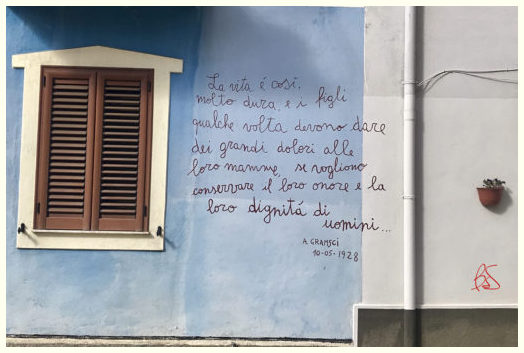 La vita é così,
molto dura, e i figli
qualche volta devono dare
dei grandi dolori alle
loro mamme, se vogliono
conservare il loro onore e la
loro dignitá di
uomini...
A. GRAMSCI
10-05-1928